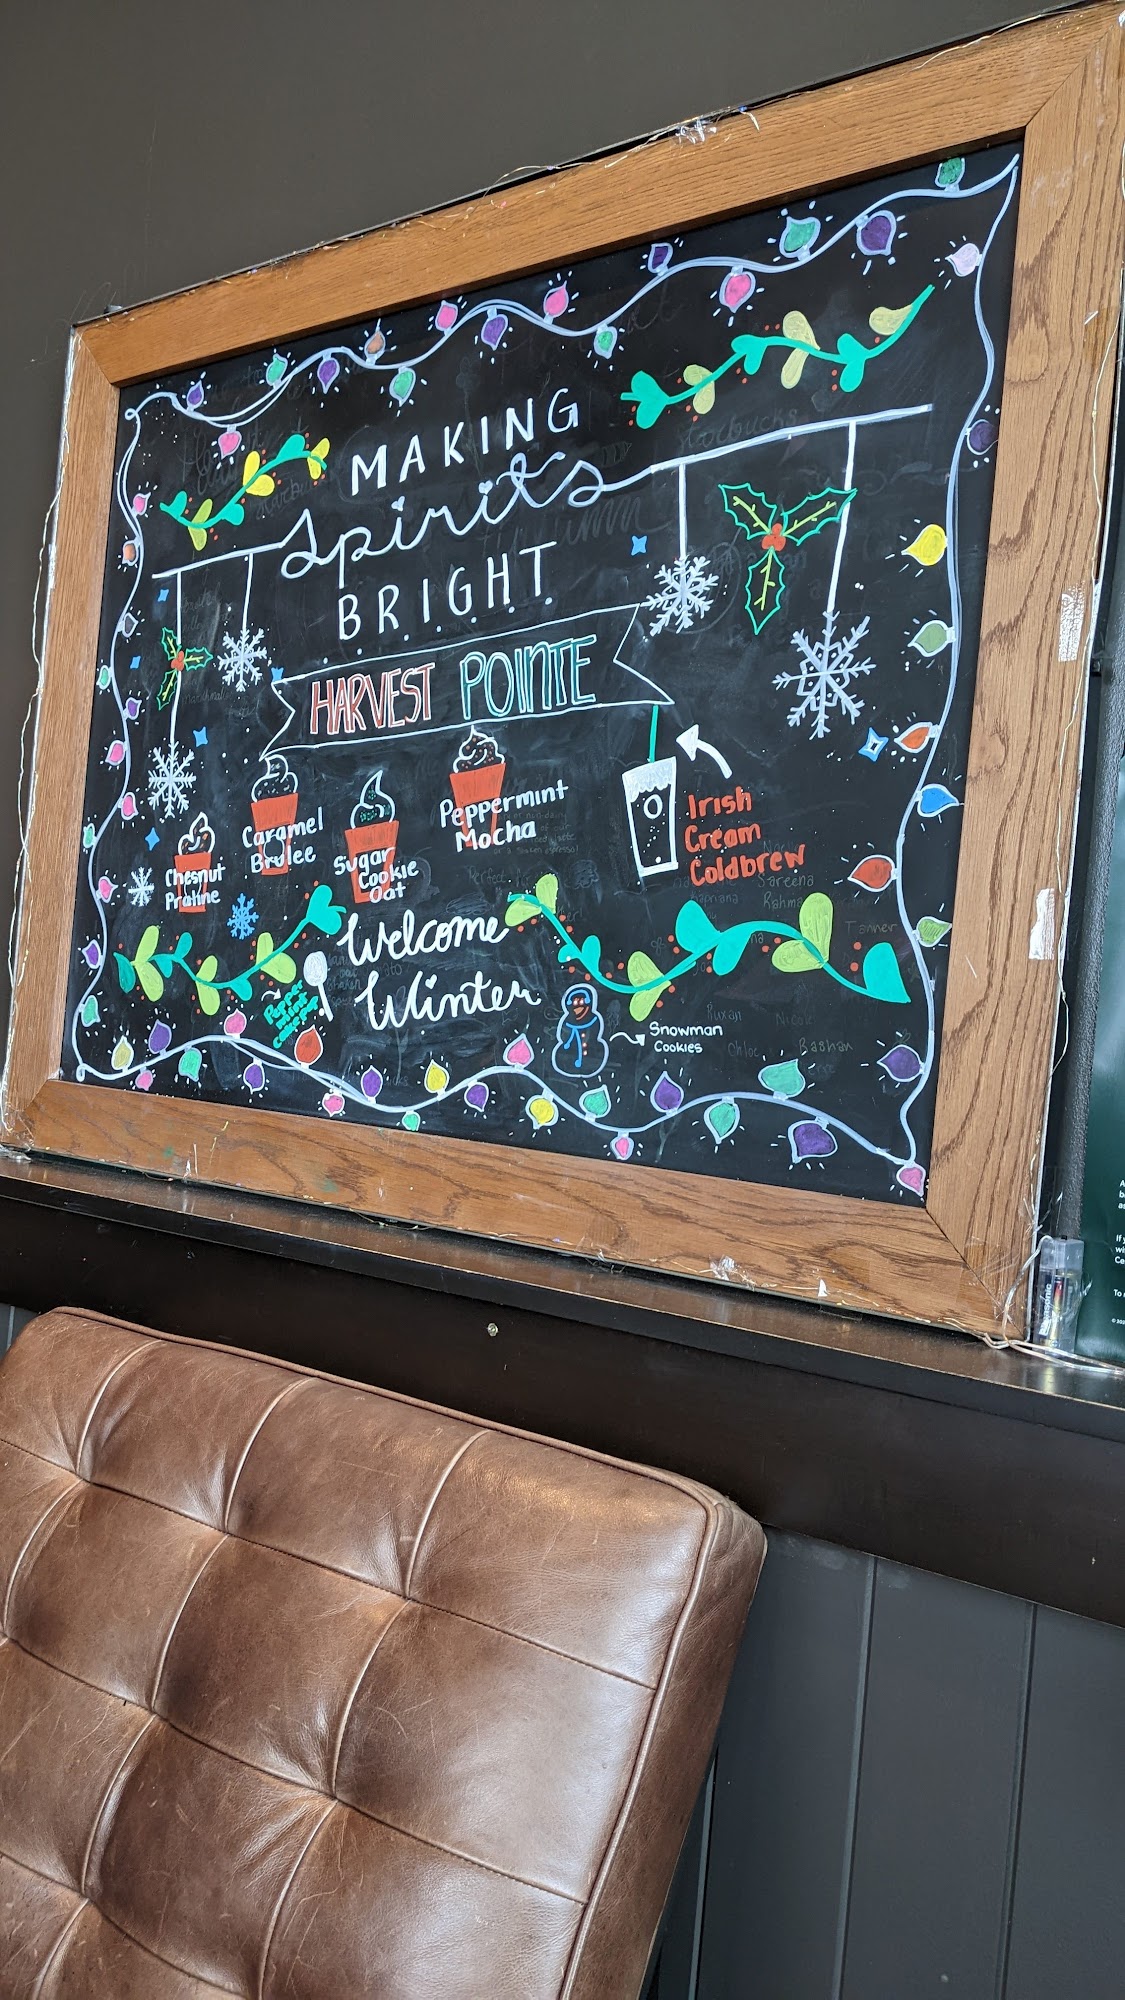 MAKING
Spirits
BRIGHT
HARVEST POINTE
Peppermint
Mocha
Caramel
Brulee
Sugar
Cookie
Oat
Chesnut
Praline
Irish
Cream
Coldbrew
Welcome
Winter
Pepper
mint
cake pop
Snowman
Cookies
Starbucks
Sareena
Rahma
Tanner
Nicole
Chloe
Rashan
Panasonic